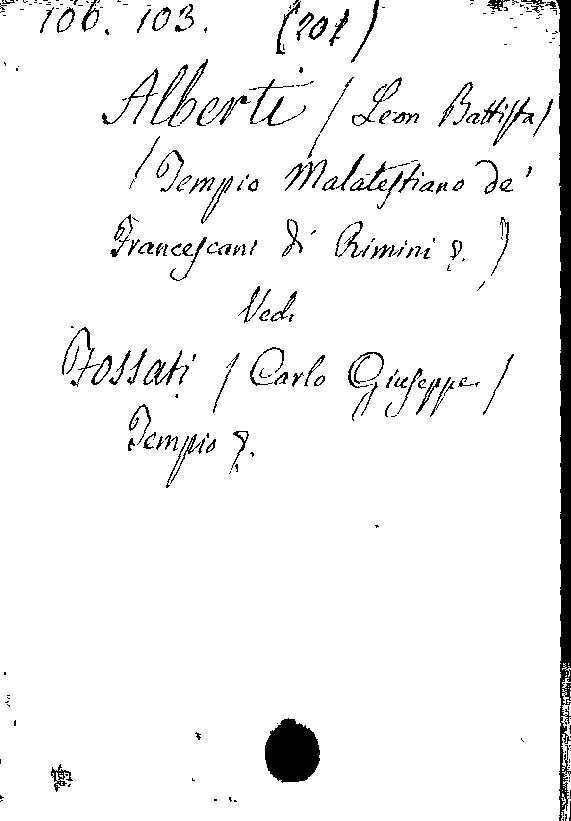 106. 103. (201)
Alberti / Leon Battista /
/ Tempio Malatestiano de'
Francescani di Rimini &. )
Vedi
Fossati / Carlo Giuseppe /
Tempio &.